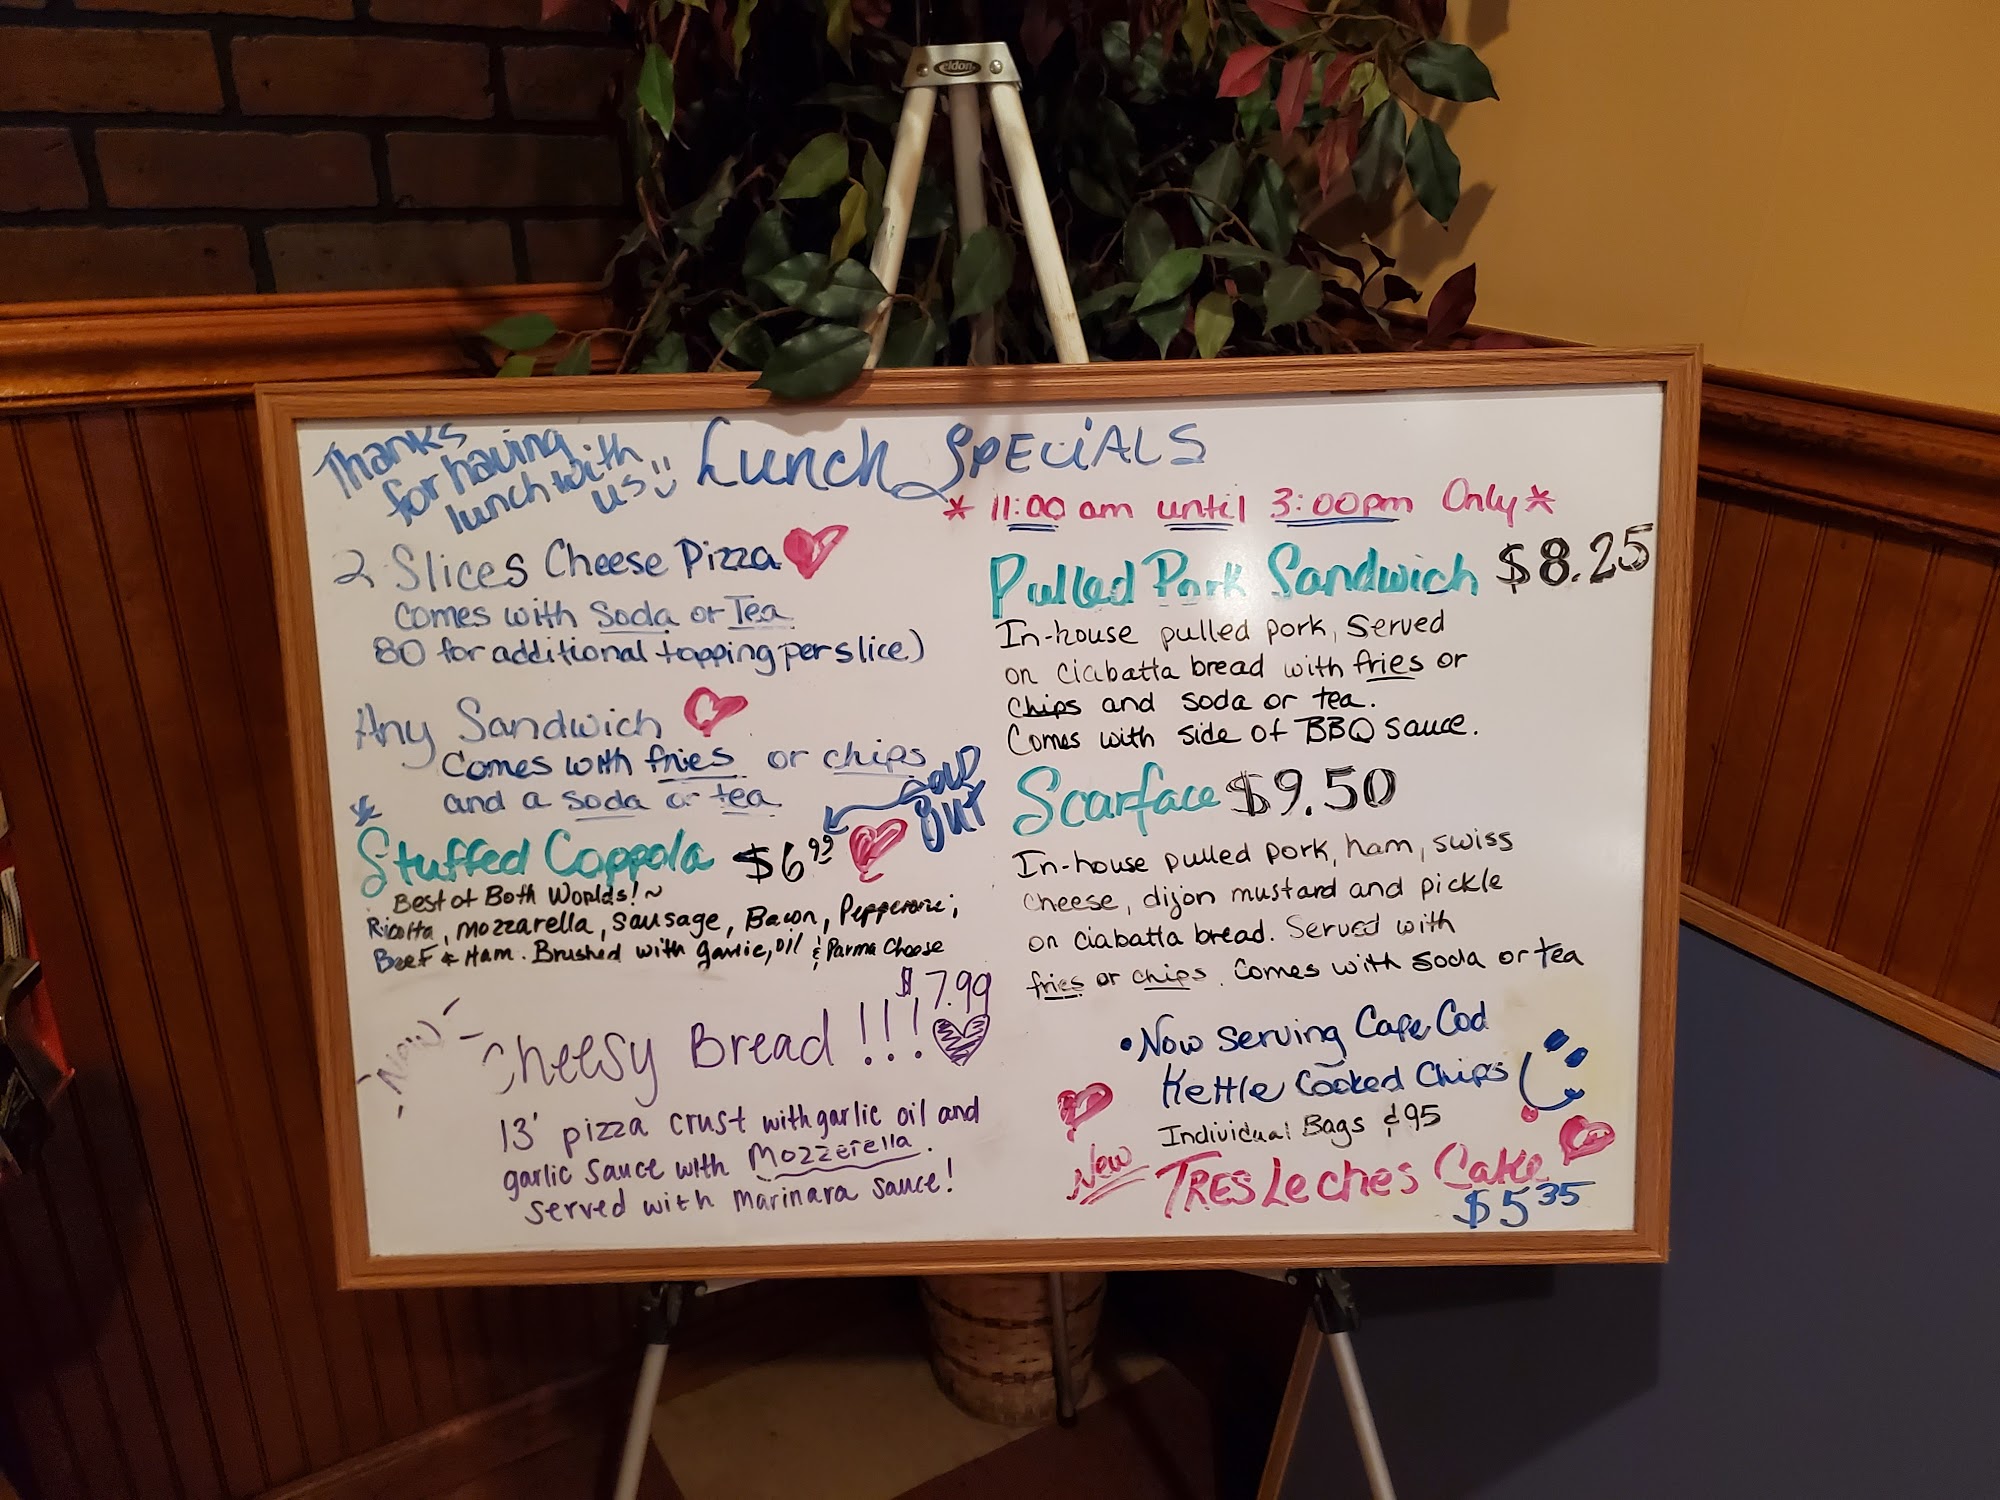 eldon
Thanks
for having
lunch with
us
Lunch SPECiALS
* 11:00 am until 3:00pm Only *
2 Slices Cheese Pizza
Comes with Soda or Tea
80 for additional topping per slice)
Any Sandwich
Comes with fries or chips
and a soda or tea
SOLD
OUT
* Stuffed Coppola $6.99
Best of Both Worlds!~
Ricotta, Mozzarella, Sausage, Bacon, Pepperoni,
Beef & Ham. Brushed with garlic, oil & Parma Cheese
$7.99
New Cheesy Bread !!!
13' pizza crust with garlic oil and
garlic sauce with Mozzerella.
served with marinara sauce!
Pulled Pork Sandwich $8.25
In-house pulled pork, Served
on ciabatta bread with fries or
chips and soda or tea.
Comes with side of BBQ sauce.
Scarface $9.50
In-house pulled pork, ham, swiss
cheese, dijon mustard and pickle
on ciabatta bread. Served with
fries or chips. Comes with soda or tea
• Now serving Cape Cod
Kettle Cooked Chips
Individual Bags ¢95
New TRES Leches Cake
$5.35